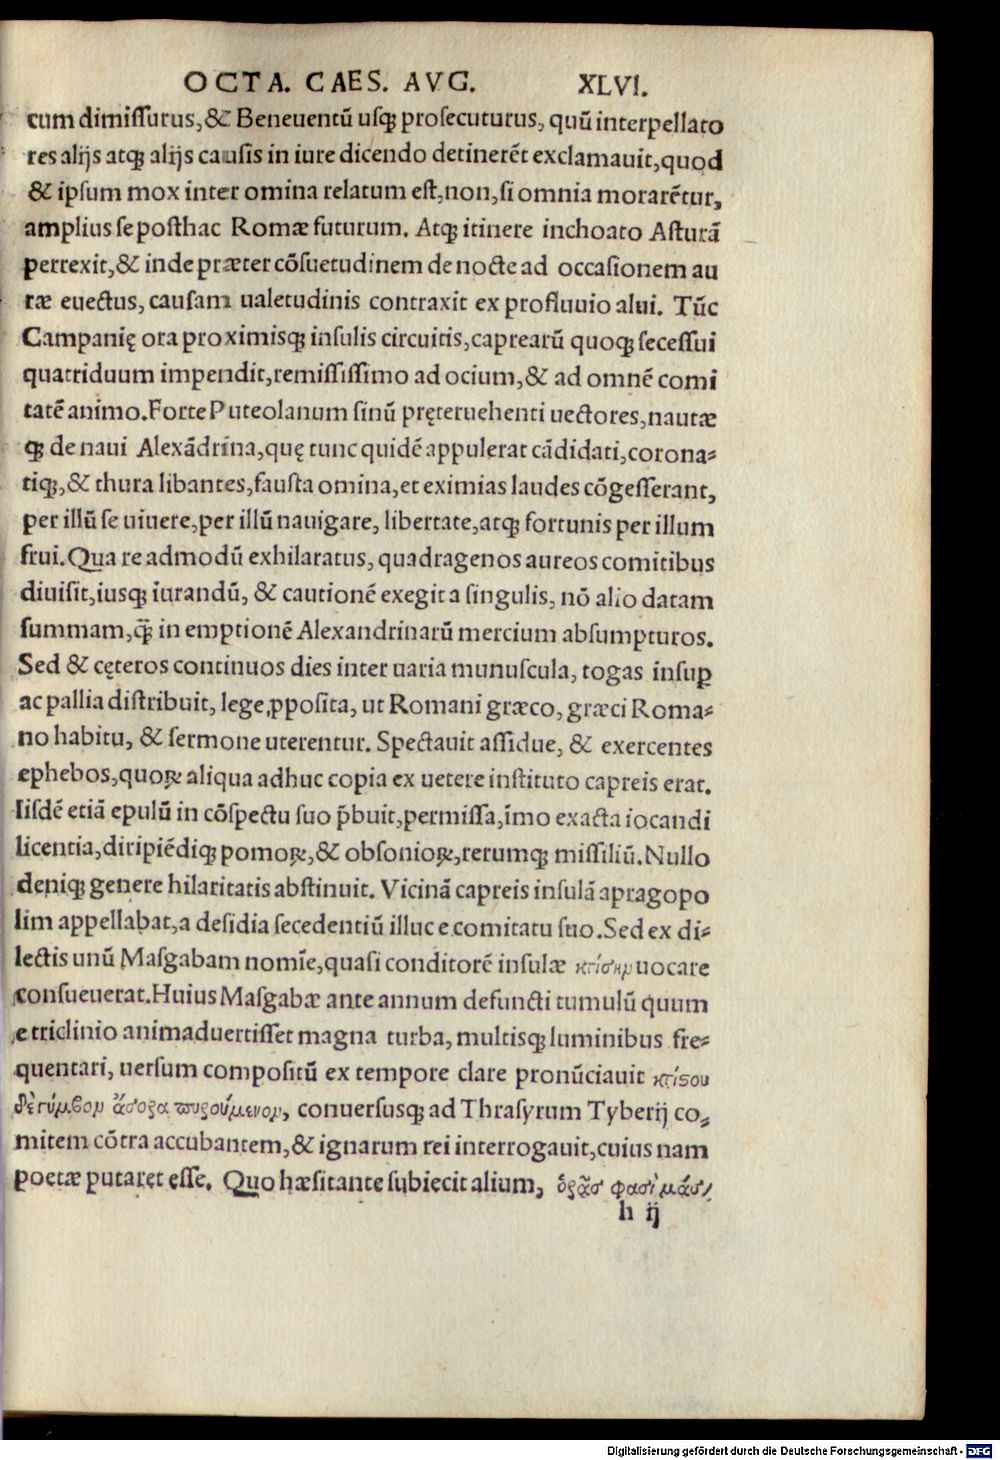 OCTA. CAES. AVG. XLVI.
cum dimissurus, & Beneuentū usq; prosecuturus, quū interpellato
res alijs atq; alijs causis in iure dicendo detinerēt exclamauit, quod
& ipsum mox inter omina relatum est, non, si omnia morarētur,
amplius se posthac Romæ futurum. Atq; itinere inchoato Asturā
perrexit, & inde præter cōsuetudinem de nocte ad occasionem au
ræ euectus, causam ualetudinis contraxit ex profluuio alui. Tūc
Campanię ora proximisq; insulis circuitis, caprearū quoq; secessui
quatriduum impendit, remississimo ad ocium, & ad omnē comi
tatē animo. Forte Puteolanum sinū pręteruehenti uectores, nautæ
q; de naui Alexādrina, quę tunc quidē appulerat cādidati, corona⸗
tiq;, & thura libantes, fausta omina, et eximias laudes cōgesserant,
per illū se uiuere, per illū nauigare, libertate, atq; fortunis per illum
frui. Qua re admodū exhilaratus, quadragenos aureos comitibus
diuisit, iusq; iurandū, & cautionē exegit a singulis, nō alio datam
summam, q̄ in emptionē Alexandrinarū mercium absumpturos.
Sed & cęteros continuos dies inter uaria munuscula, togas insuꝑ
ac pallia distribuit, lege ꝓposita, ut Romani græco, græci Roma⸗
no habitu, & sermone uterentur. Spectauit assidue, & exercentes
ephebos, quoꝝ aliqua adhuc copia ex uetere instituto capreis erat.
Iisdē etiā epulū in cōspectu suo p̄buit, permissa, īmo exacta iocandi
licentia, diripiēdiq; pomoꝝ, & obsonioꝝ, rerumq; missiliū. Nullo
deniq; genere hilaritatis abstinuit. Vicinā capreis insulā apragopo
lim appellabat, a desidia secedentiū illuc e comitatu suo. Sed ex di⸗
lectis unū Masgabam nomīe, quasi conditorē insulæ κτίσην uocare
consueuerat. Huius Masgabæ ante annum defuncti tumulū quum
e triclinio animaduertisset magna turba, multisq; luminibus fre⸗
quentari, uersum compositū ex tempore clare pronūciauit κτίϛου
δὲ τύμβον ἄσορα πυρούμενον, conuersusq; ad Thrasyrum Tyberij co⸗
mitem cōtra accubantem, & ignarum rei interrogauit, cuius nam
poetæ putaret esse. Quo hæsitante subiecit alium, ὁρᾷσ φασὶ μάσ/
h ij
Digitalisierung gefördert durch die Deutsche Forschungsgemeinschaft - DFG